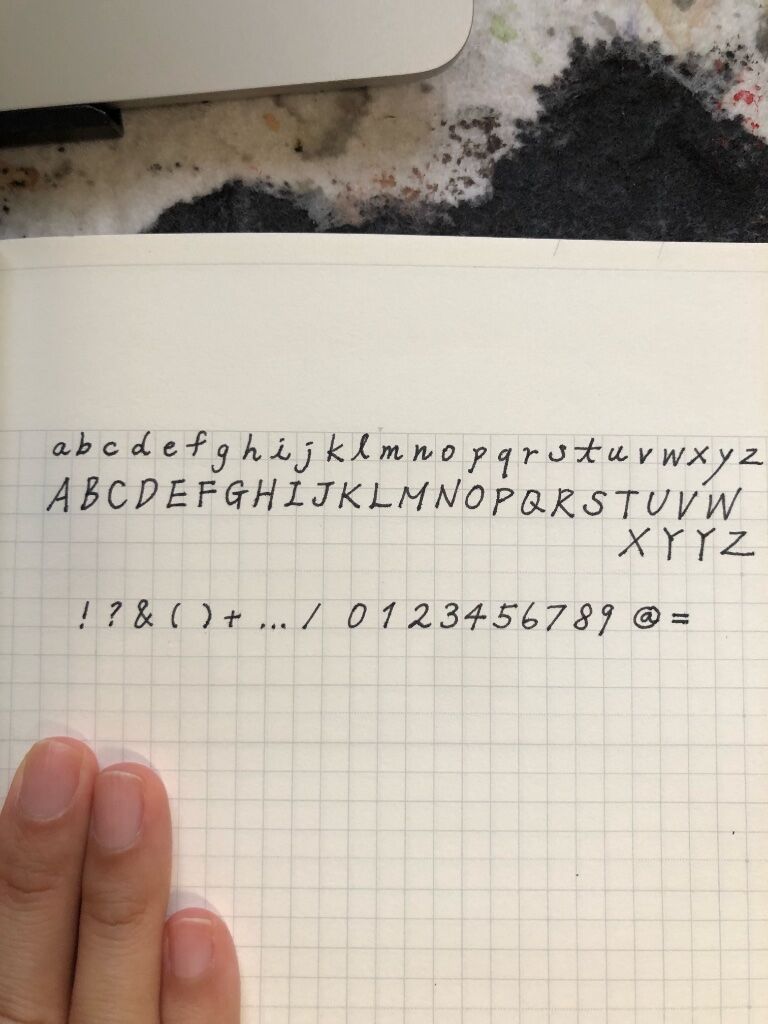 a b c d e f g h i j k l m n o p q r s t u v w x y z
A B C D E F G H I J K L M N O P Q R S T U V W
X Y Y Z
! ? & ( ) + ... / 0 1 2 3 4 5 6 7 8 9 @ =